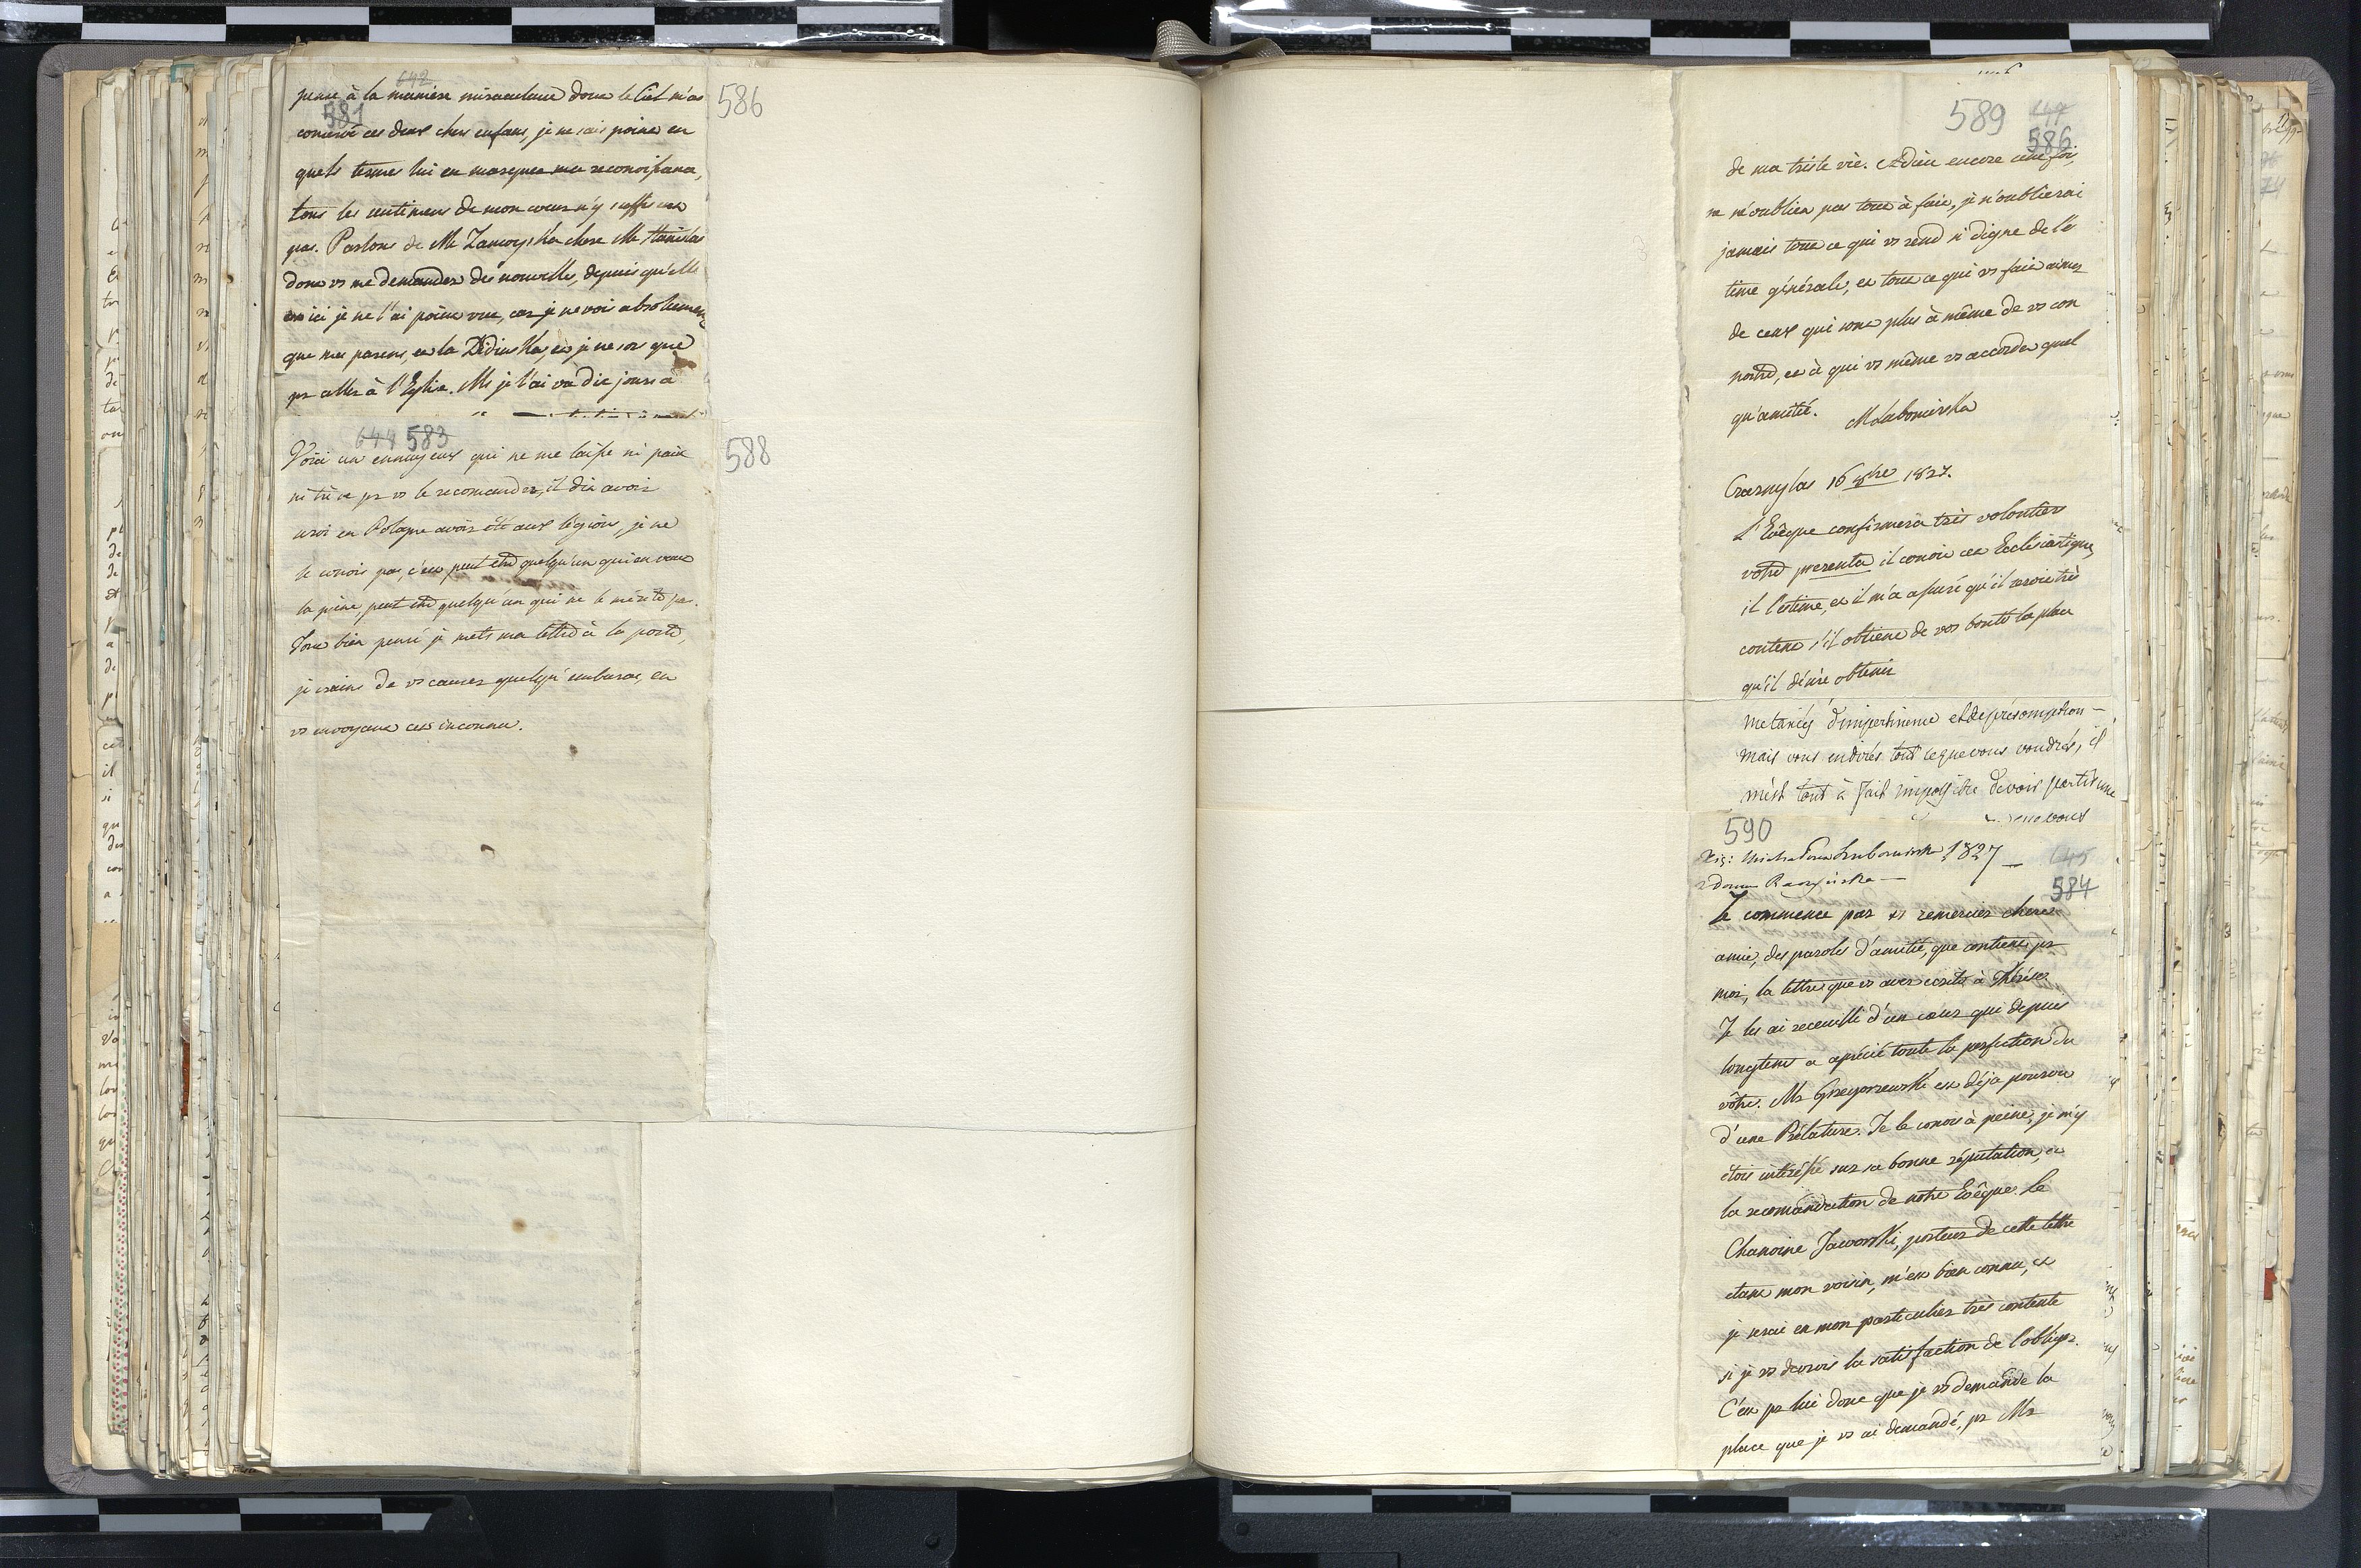 642
581
586
pense à la maniere miraculeuse dont le Ciel m'a
conservé ces deux chers enfans, je ne sais point en
quels termes lui en marquer ma reconoissance,
tous les sentimens de mon coeur n'y suffisent
pas. Parlons de Me Zamoyska chere Me Stanislas
dont vs me demandez des nouvelles, depuis qu'elle
est ici je ne l'ai point vue, car je ne vois absolument
que mes parens, et la Dedinska, et je ne sors que
pr aller à l'Eglise. Ms je l'ai vu dix jours a
644 583
588
Voici un ennuyeux qui ne me laisse ni paix
ni trève pr vs le recomander, il dit avoir
servi en Pologne avoir été aux légions, je ne
le conois pas, c'est peut etre quelqu'un qui en vaut
la peine, peut etre quelqu'un qui ne le mérite pas.
Tout bien pensé je mets ma lettre à la poste,
je crains de vs causer quelqu'embaras, en
vs envoyant cet inconnu.
589
586
de ma triste vie. Adieu encore une fois,
ne m'oubliez pas tout à fait, je n'oublierai
jamais tout ce qui vs rend si digne de l'es
time générale, et tout ce qui vs fait aimer
de ceux qui sont plus à même de vs con
noitre, et à qui vs même vs accordez quel
qu'amitié. MLubomirska
Czarnylas 16 8bre 1827.
L'Evêque confirmera très volontiers
votre presenta il conoit cet Ecclésiastique,
il l'estime, et il m'a assuré qu'il seroit très
content s'il obtient de vos bontés la place
qu'il désire obtenir
me taxiés d'impertinence et de présomption –
mais vous en dirés tout ce que vous voudrés, il
m'est tout à fait impossible de voir partir une
vous
590
Lubomirska 1827 –
645
584
Je commence par vs remercier chere
amie, des paroles d'amitié, que contient pr
moi, la lettre que vs avez écrite à Thérèse
Je les ai recueilli d'un coeur qui depuis
longtems a aprécié toute la perfection du
vôtre. Mr Grzegorzewski est déja pourvu
d'une Prélature. Je le conois à peine, je m'y
étois intéressé sur sa bonne réputation, et
la recomandation de notre Evêque. Le
Chanoine Jaworski, porteur de cette lettre
étant mon voisin, m'est bien connu, et
je serai en mon particulier très contente
si je vs devrois la satisfaction de l'obliger.
C'est pr lui donc que je vs demande la
place que je vs ai demandé, pr Mr